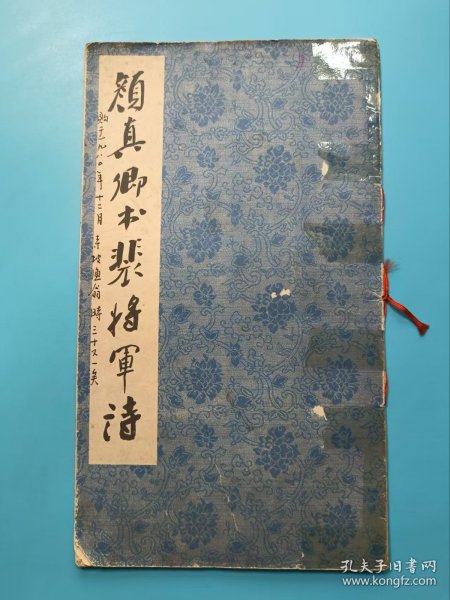 顏真卿书裴将軍诗
购于一九八〇年十二月 翁时三十又一矣
孔夫子旧书网
www.kongfz.com